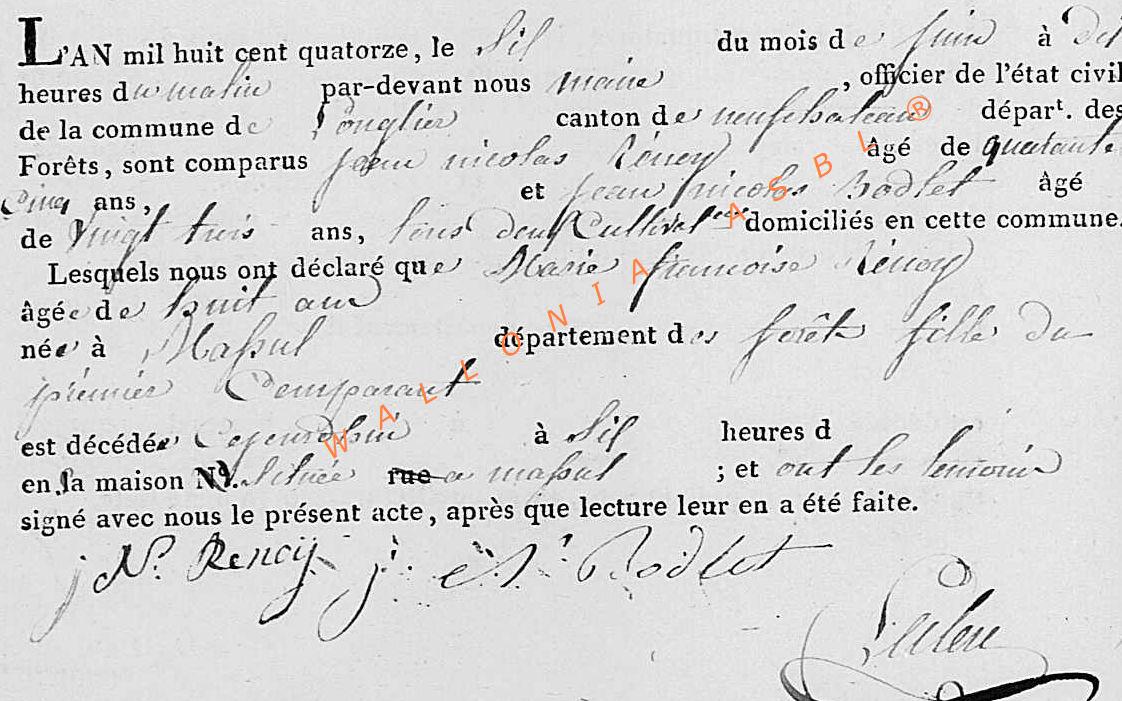 L'AN mil huit cent quatorze, le Sil du mois de juin à
heures du matin par-devant nous maire , officier de l'état civil
de la commune de Longlier canton de neufchateau départ. des
Forêts, sont comparus jean nicolas Rénoy âgé de quarante
Cinq ans, et jean nicolas Rodlet âgé
de Vingt trois ans, tous deux Cultivat domiciliés en cette commune.
Lesquels nous ont déclaré que Marie francoise Rénoy
âgée de huit ans
née à Massul département des forêts fille du
prémier Comparant
est décédée Cejourdhui à Sil heures d
en la maison N°. Située rue a massul ; et ont les temoins
signé avec nous le présent acte, après que lecture leur en a été faite.
j N. Rency j. N. Rodlet
WALLONIA ASBL ®